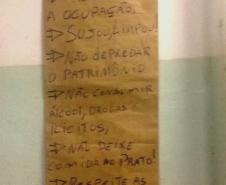 A OCUPAÇÃO.
→ SUJOU, LIMPOU!
→ NÃO DEPREDAR
O PATRIMÔNIO
→ NÃO CONSUMIR
ÁLCOOL, DROGAS E
ILÍCITOS,
→ NÃO DEIXE
COMIDA NO PRATO!
→ RESPEITE AS